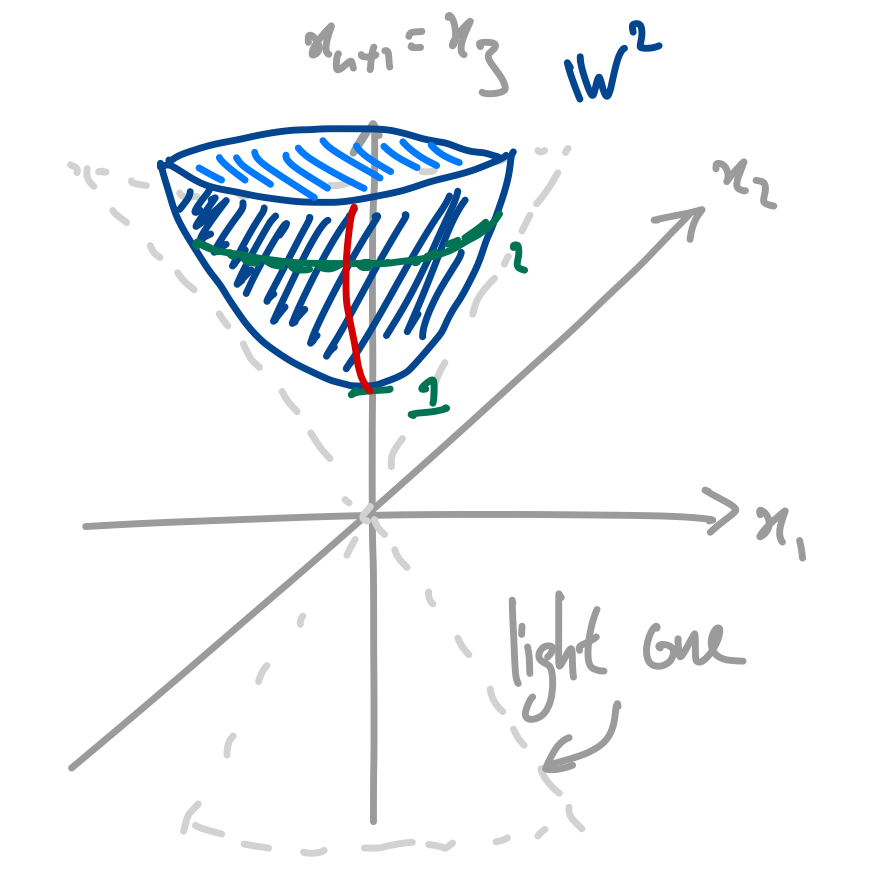 xₙ₊₁ = x₃
𝕎²
x₂
2
1
x₁
light cone